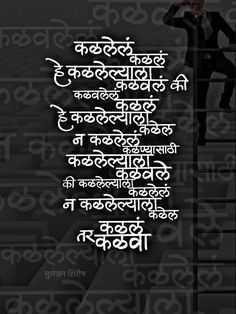 कळलेलं
कळलं
हे कळलेल्याला
कळवलं की
कळवलेलं
कळलं
हे कळलेल्याला
कळेल
न कळलेलं
कळण्यासाठी
कळलेल्याला
कळवले
की कळलेल्याला
कळलेलं
न कळलेल्याला
कळेल
कळलं
तर
कळवा
सुलेखन शिरीष